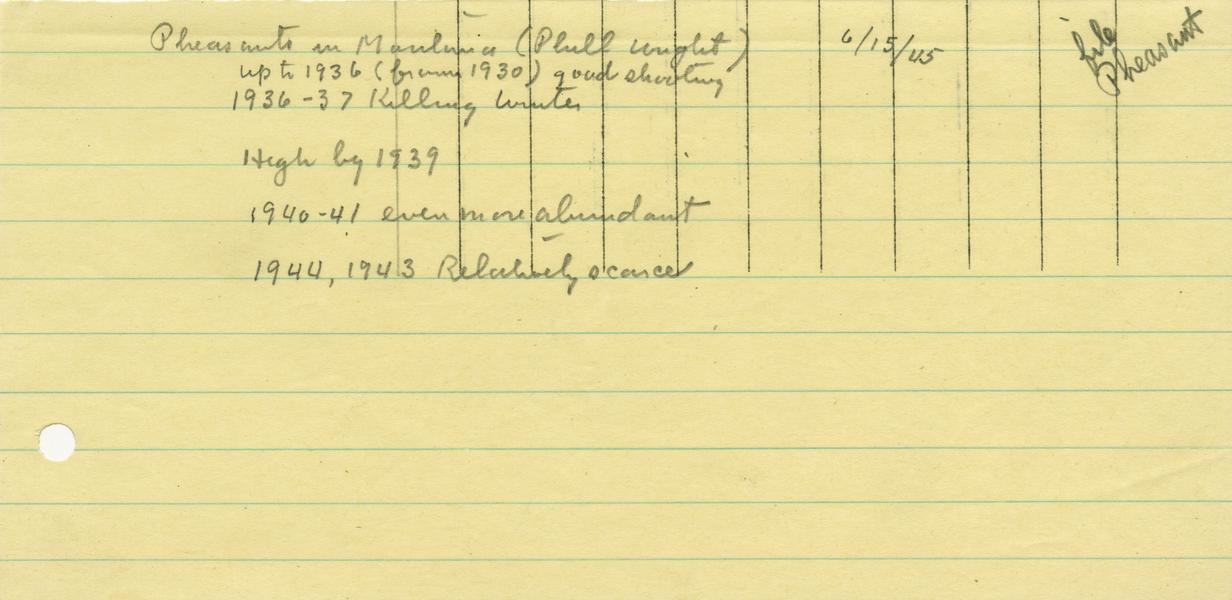 Pheasants in Montana (Phill Wright) 6/15/45
file
Pheasant
up to 1936 (from 1930) good shooting
1936-37 Killing Winter
High by 1939
1940-41 even more abundant
1944, 1943 Relatively scarce